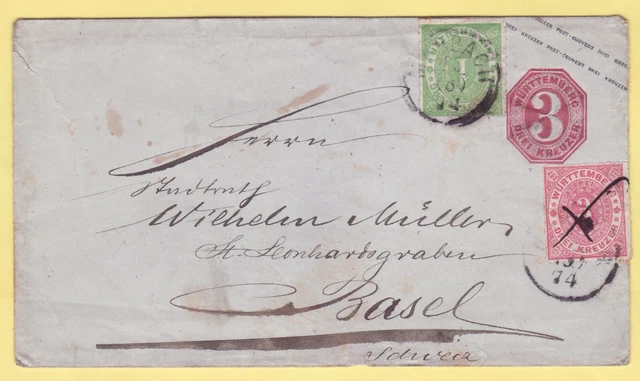 DREI KREUZER POST-COUVERT DREI KREUZER
POST-COUVERT DREI KREUZER
1
74
WÜRTTEMBERG
3
DREI KREUZER
Herrn
Stadtrath
Wilhelm Müller,
St. Leonhardsgraben
Basel
Schweiz
WÜRTTEMBERG
DREI KREUZER
74